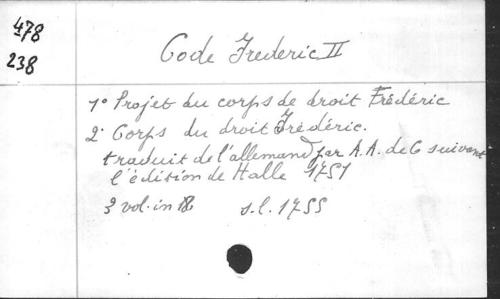 478
238
Code Frederic II
1° Projet du corps de droit Frédéric
2° Corps du droit Frédéric.
traduit de l'allemand par A.A. de C suivant
l'édition de Halle 1751
3 vol. in 18
s.l. 1755